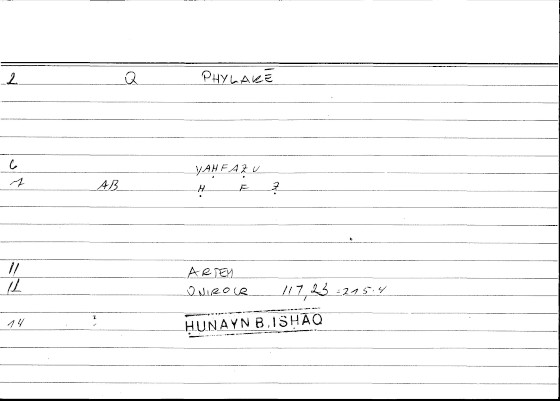 2 Q PHYLAKĒ
6 YAḤFAẒU
7 AB Ḥ F Ẓ
11 ARTEM
12 ONIROCR 117,23 = 215.4
14 : ḤUNAYN B. ISḤĀQ